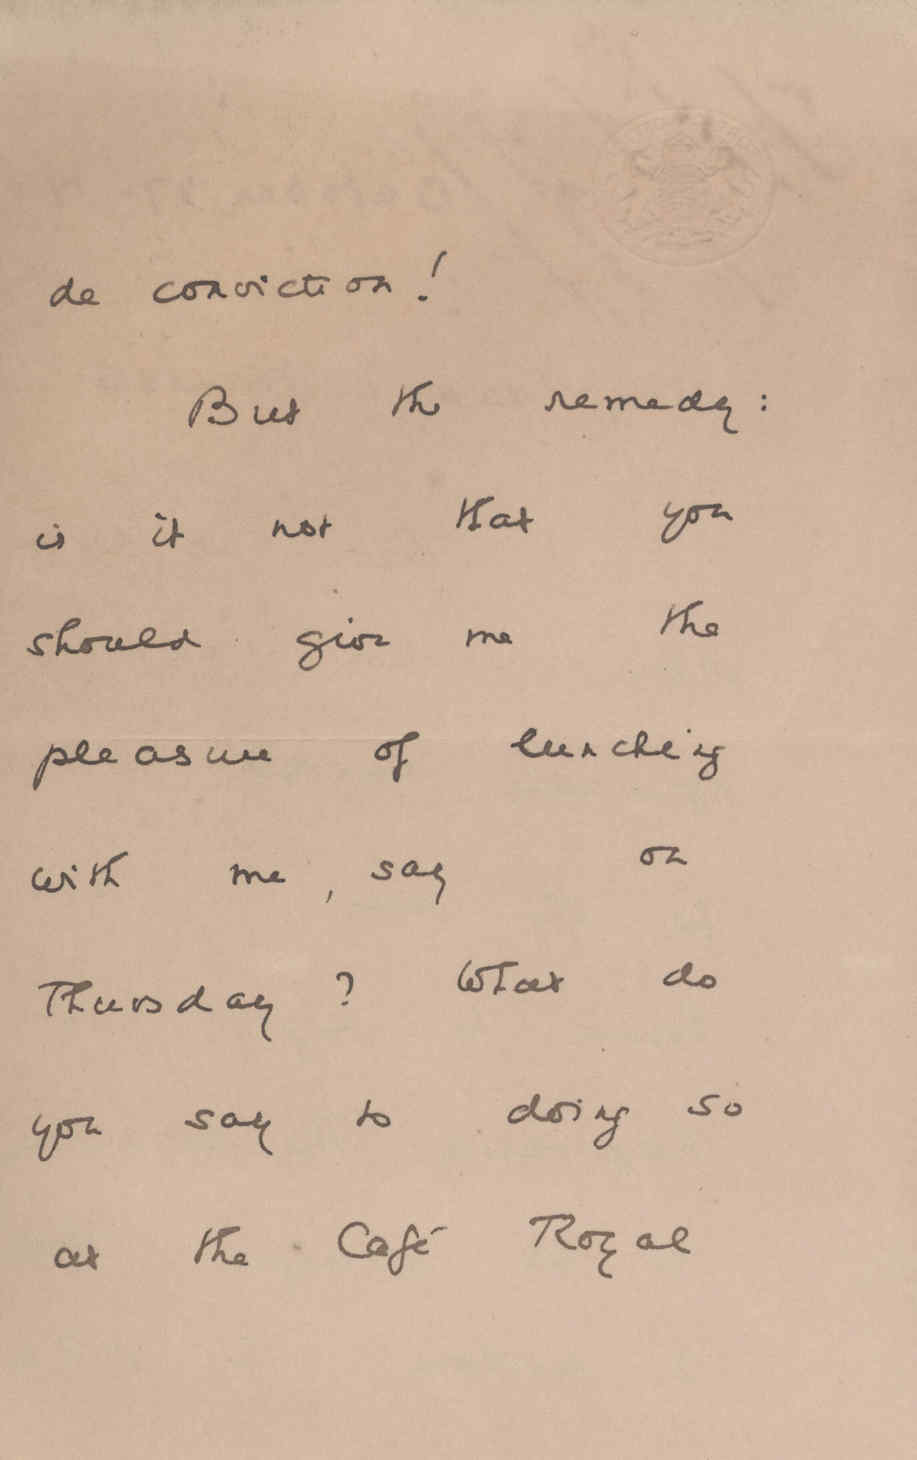 de conviction!
But the remedy:
is it not that you
should give me the
pleasure of lunching
with me, say on
Thursday? What do
you say to doing so
at the Café Royal